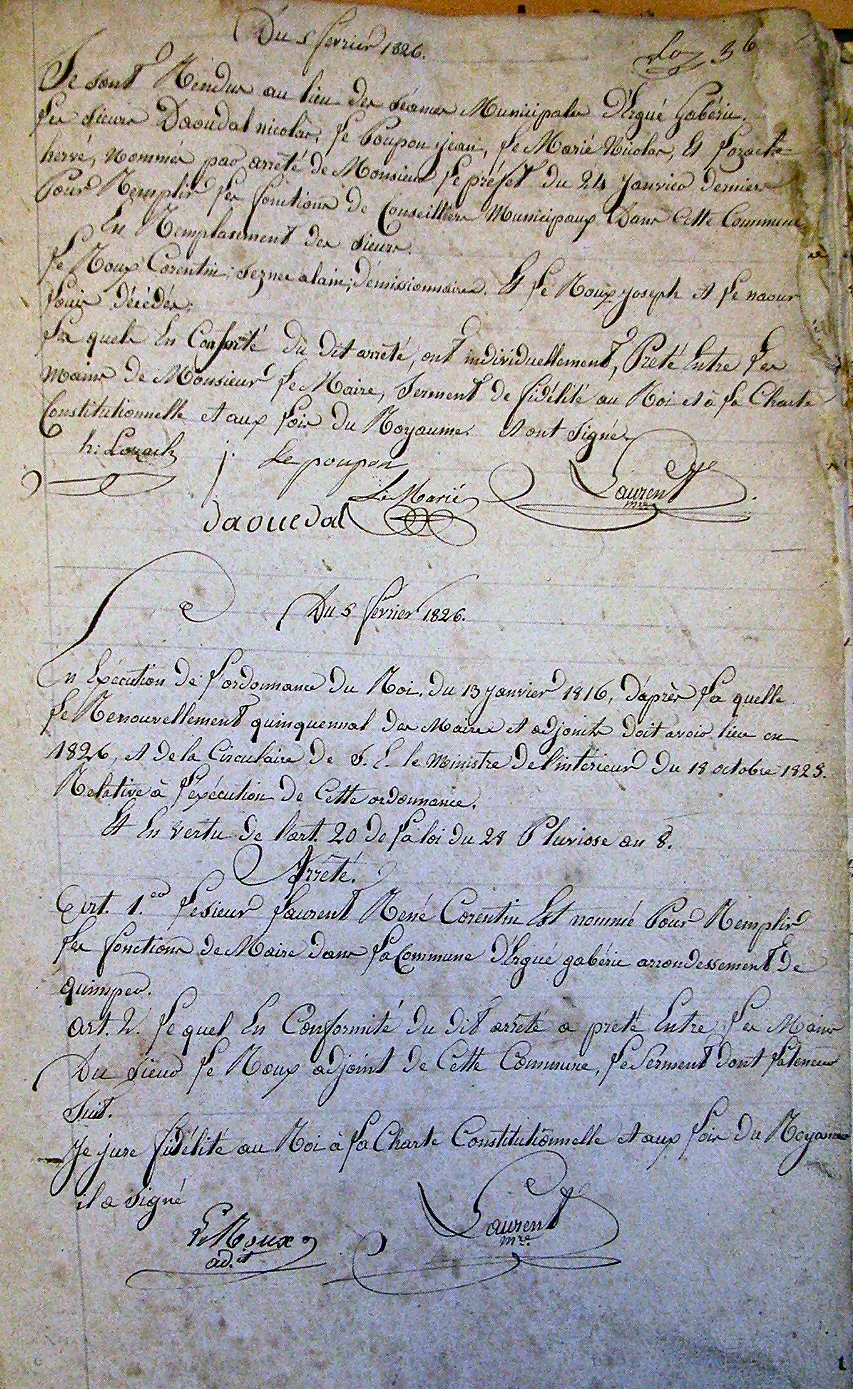 Du 5 fevrier 1826.
36
Se sont Rendus au lieu des séances Municipales d'Ergué Gabéric.
Les sieurs Daoudal nicolas, Le Poupon jean, Le Marié Nicolas, Et Lozach
hervé, Nommés par arrêté de Monsieur Le préfet du 24 Janvier dernier
Pour Remplir Les fonctions de Conseillers Municipaux Dans Cette Commune
En Remplasement des sieurs.
Le Roux Corentin, seznec alain, demissionnaires. Et Le Roux joseph et Le naour
Louis décédés.
La quels En Conforté du dit arrêté, ont individuellement, Preté Entre Les
mains de Monsieur Le Maire, Serment de fidélité au Roi et à La Charte
Constitutionnelle et aux Lois du Royaume. et ont signé.
h: Lozach
j. Le poupon
Laurent
mre
Le Marié
daouedal
Du 5 fevrier 1826.
En Exécution de L'ordonnance du Roi, du 13 janvier 1816, d'après La quelle
Le Renouvellement quinquennal des Maires et adjoints doit avoir lieu en
1826, et de la Circulaire de S. E. le Ministre de l'intérieur du 18 octobre 1825.
Relative à L'exécution de Cette ordonnance.
Et En vertu de l'art. 20 de La loi du 28 Pluviose an 8.
Arrêté.
Art. 1.er Le sieur Laurent René Corentin Est nommé Pour Remplir
Les fonctions de Maire dans La Commune d'Ergué gabéric arrondessement de
quimper.
art. 2. Le quel En Conformité du dit arreté a preté Entre Les Mains
Du sieur Le Roux adjoint de Cette Commune, Le Serment dont La teneur
Suit.
Je jure fidélité au Roi à La Charte Constitutionnelle et aux Lois du Royaume
il a signé
Le Roux
ad.it
Laurent
mre